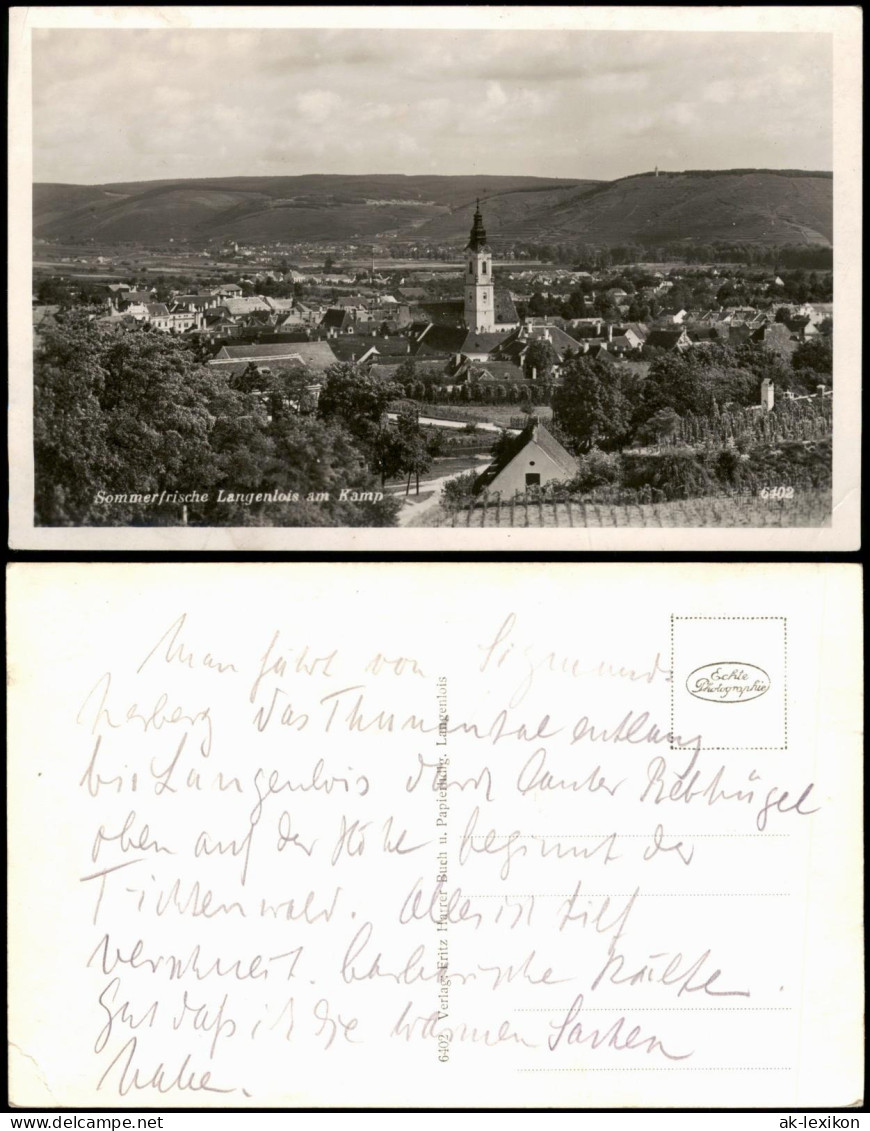 Sommerfrische Langenlois am Kamp
6402
Echte
Photographie
Man fährt von Sigmunds
herberg das Thumental entlang
bis Langenlois durch lauter Rebhügel
oben auf der Höhe beginnt der
Fichtenwald. Alles ist tief
verschneit. barbarische Kälte.
Gut daß ich die warmen Sachen
habe.
6402 Verlag: Fritz Harrer Buch u. Papierhdlg. Langenlois
ak-lexikon